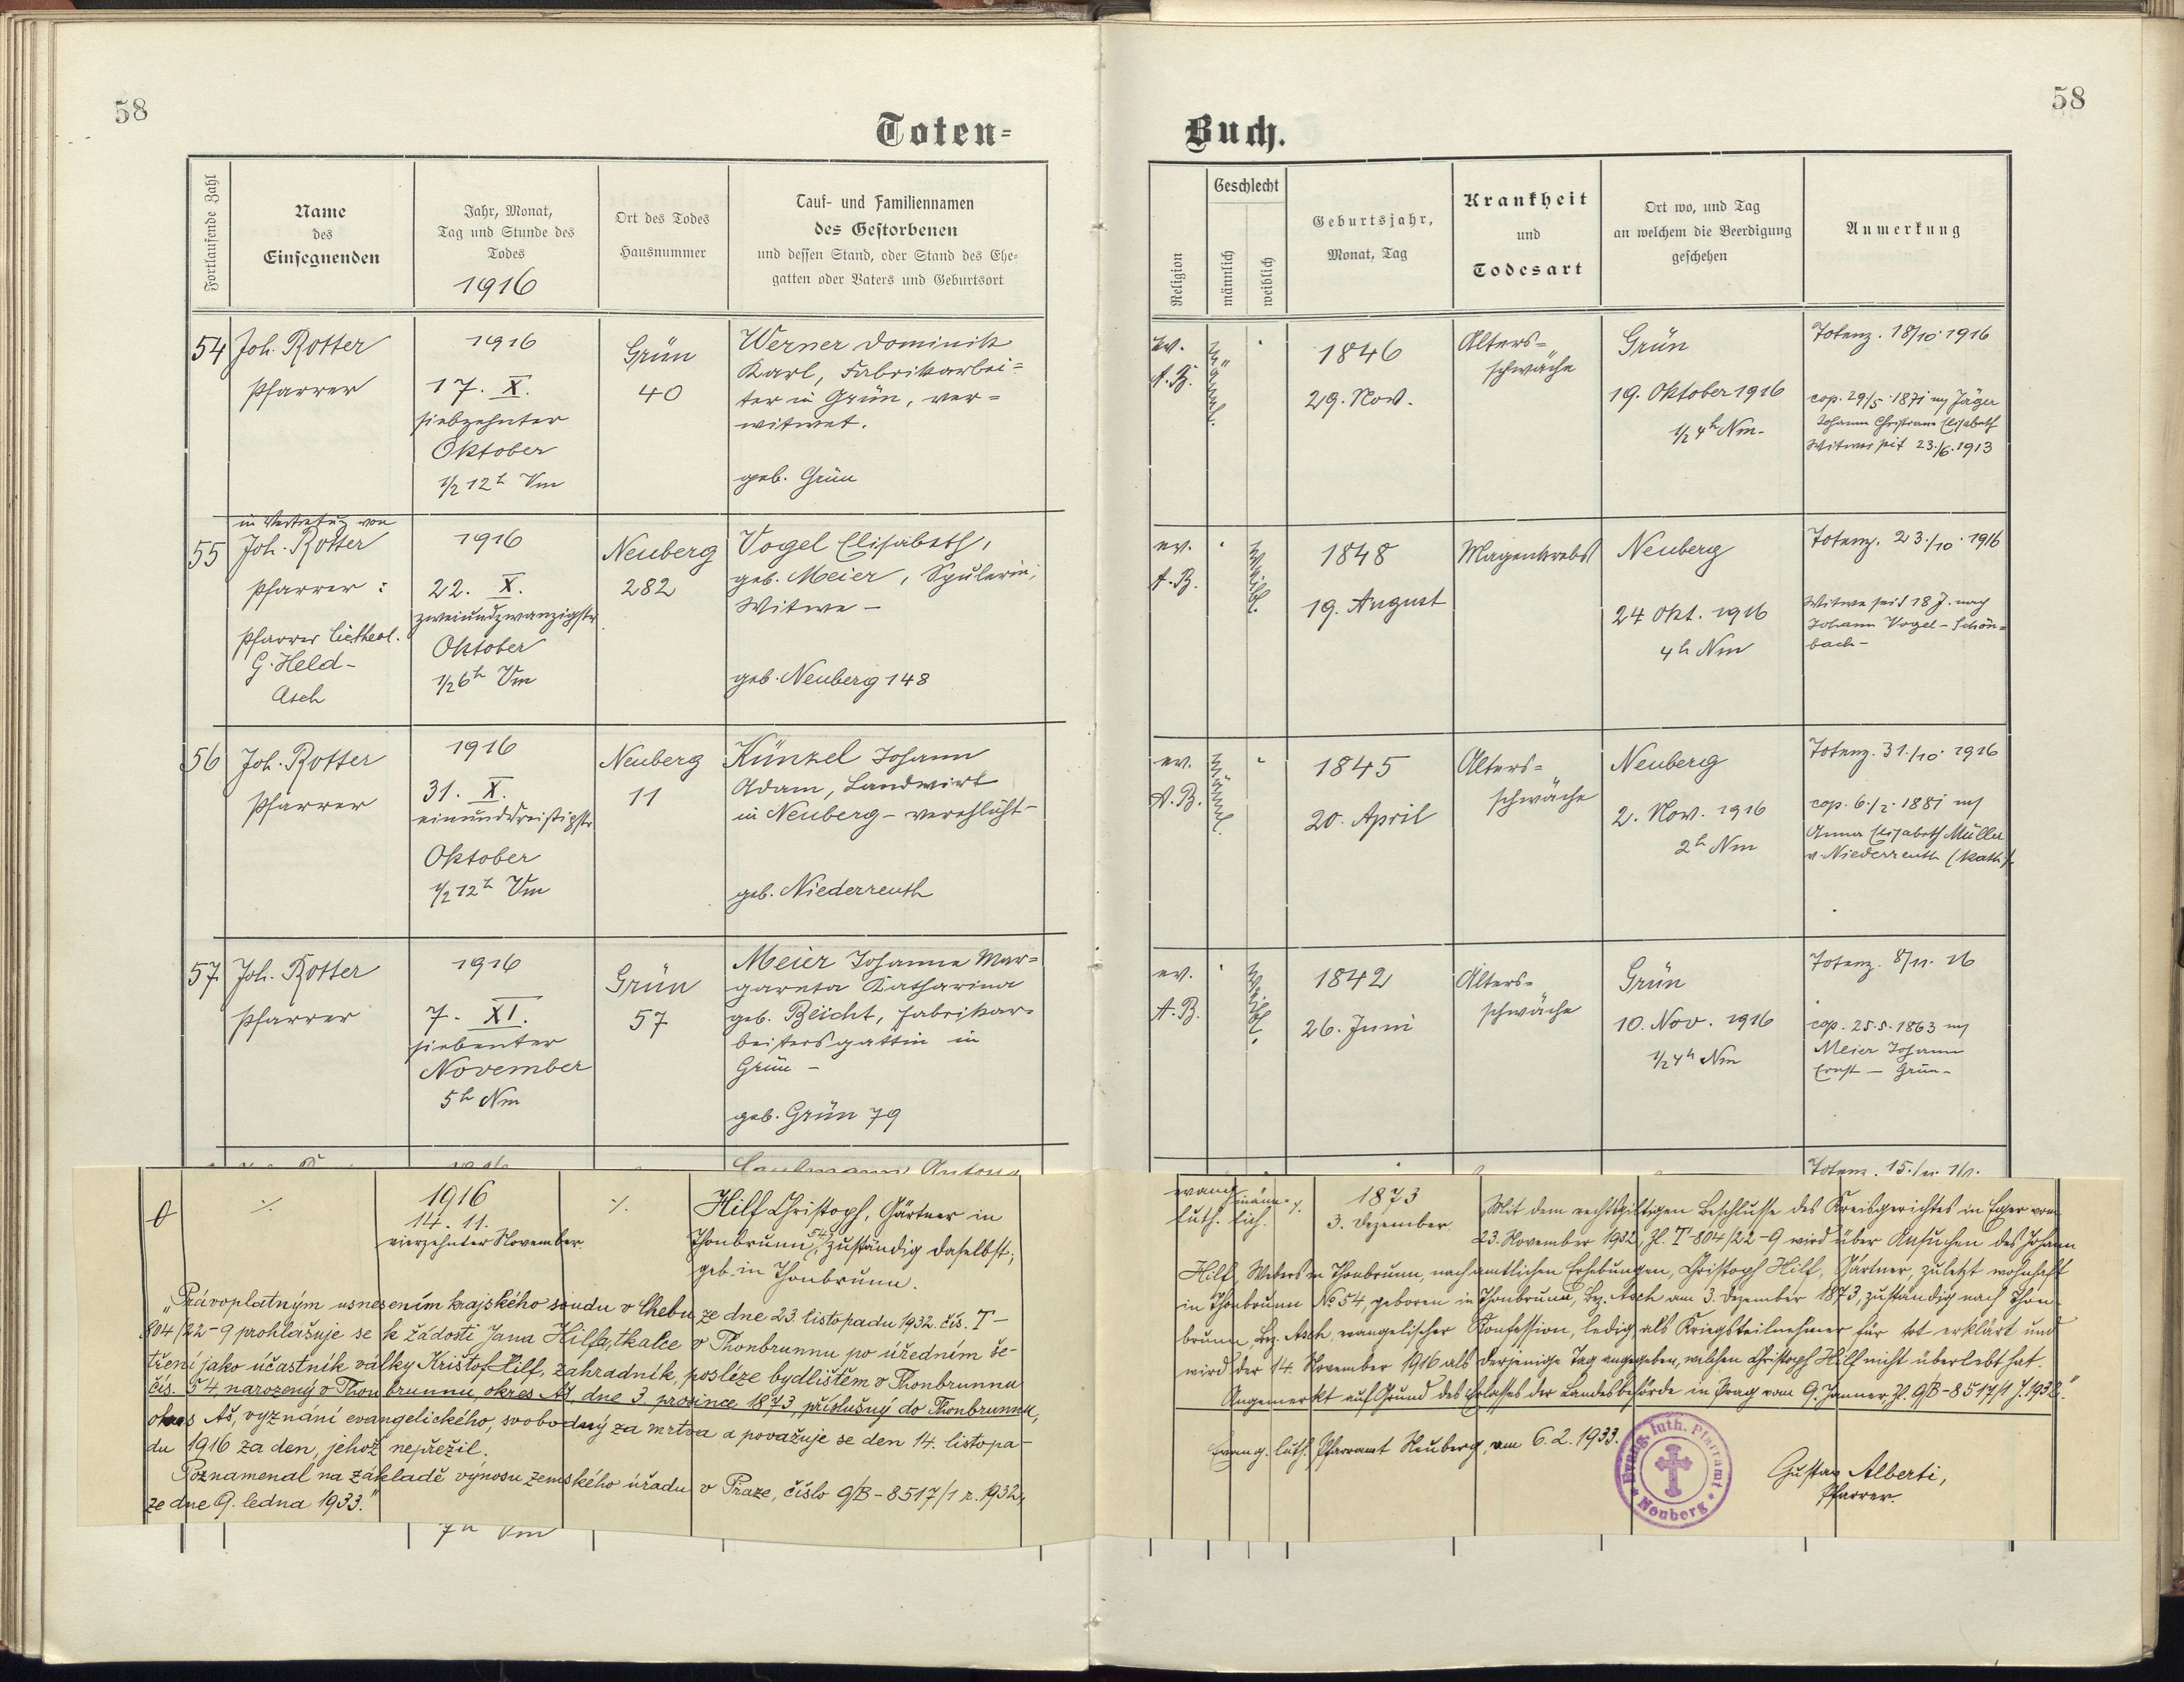 58
58
Toten-
Buch.
Fortlaufende Zahl
Name
des
Einsegnenden
Jahr, Monat,
Tag und Stunde des
Todes
1916
Ort des Todes
Hausnummer
Tauf- und Familiennamen
des Gestorbenen
und dessen Stand, oder Stand des Ehe-
gatten oder Vaters und Geburtsort
Religion
Geschlecht
männlich
weiblich
Geburtsjahr,
Monat, Tag
Krankheit
und
Todesart
Ort wo, und Tag
an welchem die Beerdigung
geschehen
Anmerkung
54
Joh. Rotter
Pfarrer
1916
17. X.
siebzehnter
Oktober
1/2 12 h Vm
Grün
40
Werner Dominik
Karl, Fabrikarbei-
ter in Grün, ver-
witwet.
geb. Grün
ev.
A.B.
männl.
1846
29. Nov.
Alters-
schwäche
Grün
19. Oktober 1916
1/2 4 h Nm.
Totenz. 18/10. 1916
cop. 29/5. 1871 m/ Jäger
Johann Christiane Elisabeth
Witwer seit 23./6. 1913
55
in Vertretung von
Joh. Rotter
Pfarrer :
Pfarrer
G. Held-
Asch
1916
22. X.
zweiundzwanzigster
Oktober
1/2 6 h Vm
Neuberg
282
Vogel Elisabeth,
geb. Meier, Spulerin,
Witwe -
geb. Neuberg 148
ev.
A.B.
weibl.
1848
19. August
Magenkrebs
Neuberg
24 Okt. 1916
4 h Nm
Totenz. 23./10. 1916
Witwe seit 18 J. nach
Johann Vogel - Schön-
bach -
56
Joh. Rotter
Pfarrer
1916
31. X.
einunddreißigster
Oktober
1/2 12 h Vm
Neuberg
11
Künzel Johann
Adam, Landwirt
in Neuberg - verehlicht -
geb. Niederreuth
ev.
A.B.
männl.
1845
20. April
Alters-
schwäche
Neuberg
2. Nov. 1916
2 h Nm
Totenz. 31./10. 1916
cop. 6./2. 1881 m/
Anna Elisabeth Müller
v. Niederreuth (kath.)
57
Joh. Rotter
Pfarrer
1916
7. XI.
siebenter
November
5 h Nm
Grün
57
Meier Johanna Mar-
gareta Katharina
geb. Beicht, Fabrikar-
beitersgattin in
Grün -
geb. Grün 79
ev.
A.B.
weibl.
1842
26. Juni
Alters-
schwäche
Grün
10. Nov. 1916
1/2 4 h Nm
Totenz. 8/11. 16
cop. 25.5. 1863 m/
Meier Johann
Ernst - Grün -
1916
Anton
Totenz. 15./11. 16.
0
./.
1916
14. 11.
vierzehnter November.
./.
Hilf Christoph, Gärtner in
Thonbrunn 54, zuständig daselbst;
geb. in Thonbrunn.
„Právoplatným usnesením krajského soudu v Chebu ze dne 23. listopadu 1932. čís. T-
804/22-9 prohlašuje se k žádosti Jana Hilfa, tkalce v Thonbrunnu po úředním še-
tření jako účastník války Krištof Hilf, zahradník, posléze bydlištěm v Thonbrunnu
čís. 54 narozený v Thonbrunnu, okres Aš, dne 3. prosince 1873, příslušný do Thonbrunnu,
okres Aš, vyznání evangelického, svobodný za mrtva a považuje se den 14. listopa-
du 1916 za den, jehož nepřežil.
Poznamenal na základě výnosu zemského úřadu v Praze, číslo 9/B-8517/1 r. 1932,
ze dne 9. ledna 1933.“
7 h Vm
evang.
luth.
männ-
lich.
./.
1873
3. Dezember.
„Mit dem rechtsgiltigen Beschlusse des Kreisgerichtes in Eger vom
23. November 1932, Zl. T-804/22-9 wird über Ansuchen des Johann
Hilf, Webers in Thonbrunn, nach amtlichen Erhebungen, Christoph Hilf, Gärtner, zuletzt wohnhaft
in Thonbrunn No 54, geboren in Thonbrunn, Bez. Asch am 3. Dezember 1873, zuständig nach Thon-
brunn, Bez. Asch, evangelischer Konfession, ledig, als Kriegsteilnehmer für tot erklärt und
wird der 14. November 1916 als derjenige Tag angegeben, welchen Christoph Hilf nicht überlebt hat.
Angemerkt auf Grund des Erlasses der Landesbehörde in Prag vom 9. Jänner, Zl. 9/B-8517/1 J. 1932.“
Evang. luth. Pfarramt Neuberg, am 6. 2. 1933.
Evang. luth. Pfarramt
Neuberg
Gustav Alberti,
Pfarrer.